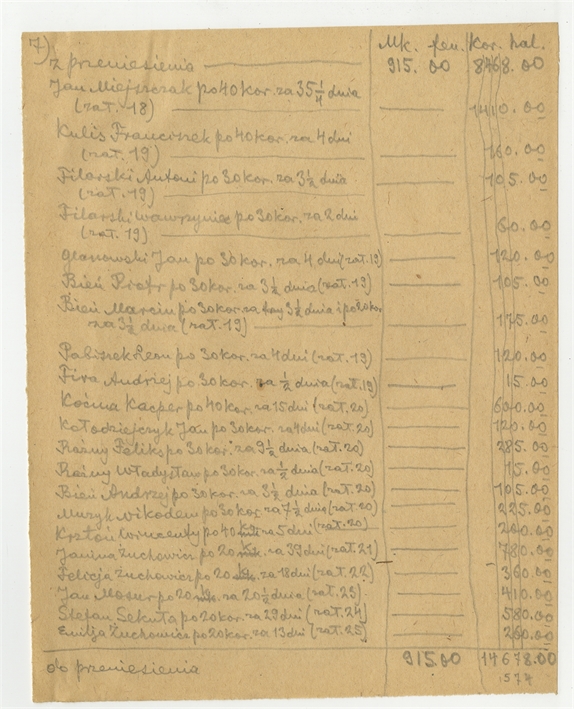 7)
Mk. fen. Kor. hal.
z przeniesienia 915.00 8468.00
Jan Miejszczak po 40 kor. za 35 1/4 dnia
(zał. 18) 1410.00
Kulis Franciszek po 40 kor. za 4 dni
(zał. 19) 160.00
Filarski Antoni po 30 kor. za 3 1/2 dnia 105.00
(zał. 19)
Filarski Wawrzyniec po 30 kor. za 2 dni
(zał. 19) 60.00
Glanowski Jan po 30 kor. za 4 dni (zał. 19) 120.00
Bień Piotr po 30 kor. za 3 1/2 dnia (zał. 19) 105.00
Bień Marcin po 30 kor. za 3 1/2 dnia i po 20 kor.
za 3 1/2 dnia (zał. 19) 175.00
Pabiszek Leon po 30 kor. za 4 dni (zał. 19) 120.00
Fira Andrzej po 30 kor. za 1/2 dnia (zał. 19) 15.00
Koćma Kacper po 40 kor. za 15 dni (zał. 20) 600.00
Kołodziejczyk Jan po 30 kor. za 4 dni (zał. 20) 120.00
Rażny Feliks po 30 kor. za 9 1/2 dnia (zał. 20) 285.00
Rażny Władysław po 30 kor. za 1/2 dnia (zał. 20) 15.00
Bień Andrzej po 30 kor. za 3 1/2 dnia (zał. 20) 105.00
Muzyk Nikodem po 30 kor. za 7 1/2 dnia (zał. 20) 225.00
Krztoń Wincenty po 40 k. za 5 dni (zał. 20) 200.00
Janina Żuchowicz po 20 k. za 39 dni (zał. 21) 780.00
Felicja Żuchowicz po 20 k. za 18 dni (zał. 22) 360.00
Jan Mosur po 20 k. za 20 1/2 dnia (zał. 23) 410.00
Stefan Sekuła po 20 kor. za 29 dni (zał. 24) 580.00
Emilja Żuchowicz po 20 kor. za 13 dni (zał. 25) 260.00
do przeniesienia 915.00 14678.00
574